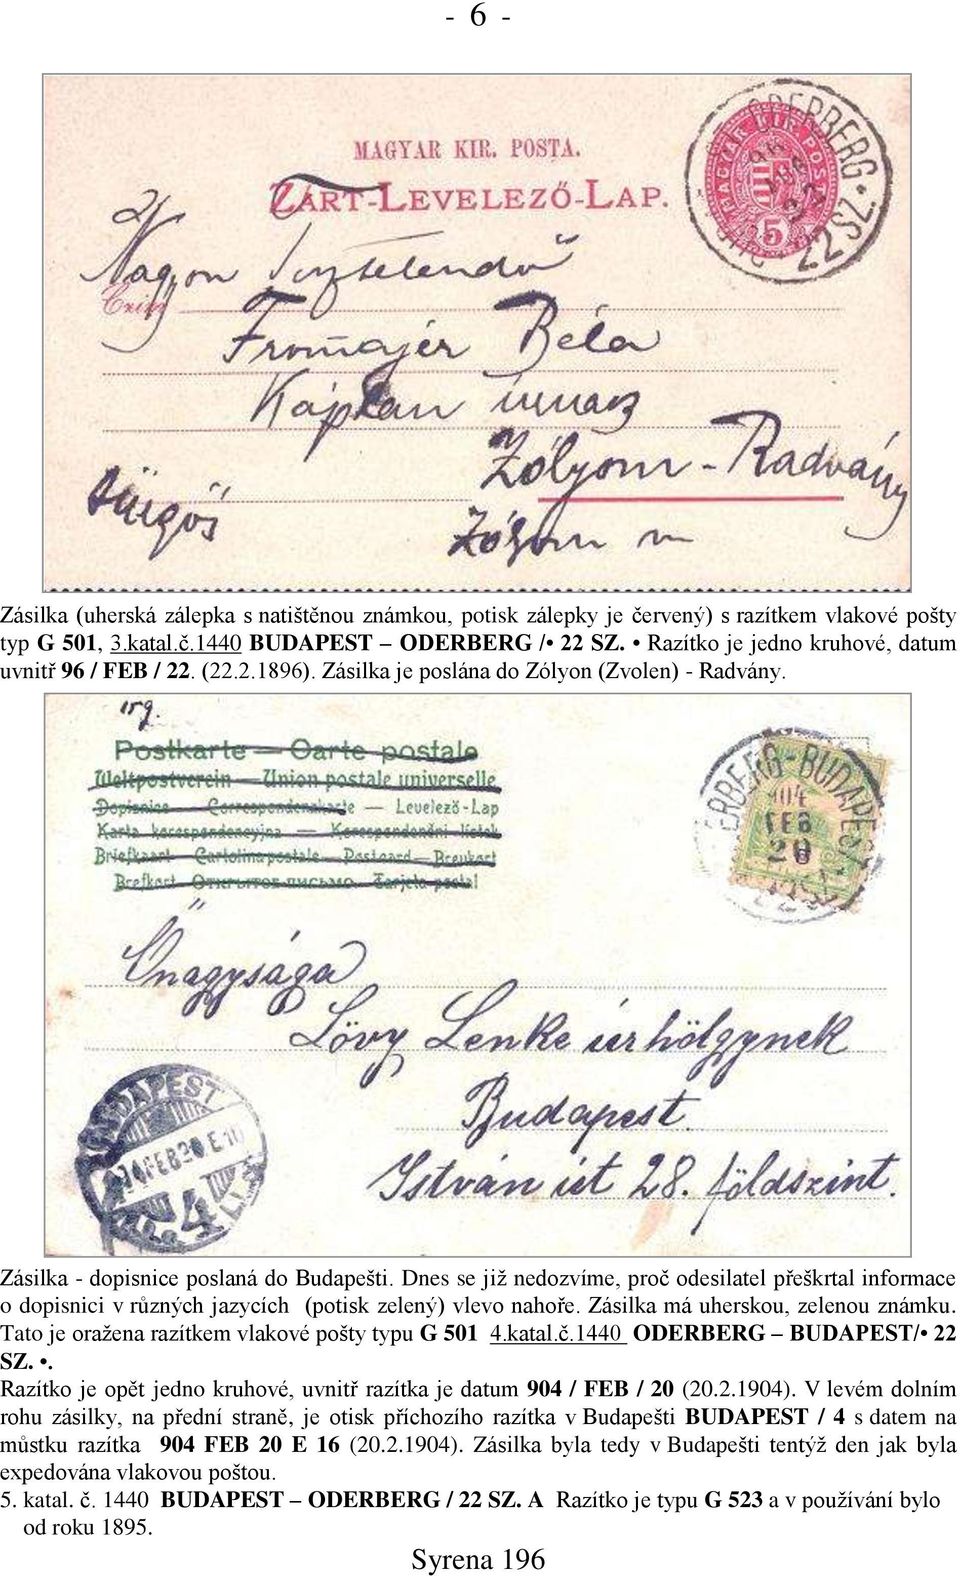 - 6 -
MAGYAR KIR. POSTA.
ZÁRT-LEVELEZŐ-LAP.
ODERBERG • 22 SZ •
MAGYAR KIR. POSTA
5
Nagyon Tisztelendő
Fromajér Béla
Káplán úrnak
Zólyom - Radvány
Sürgős
Zólyom m
Zásilka (uherská zálepka s natištěnou známkou, potisk zálepky je červený) s razítkem vlakové pošty
typ G 501, 3.katal.č.1440 BUDAPEST – ODERBERG /• 22 SZ. • Razítko je jedno kruhové, datum
uvnitř 96 / FEB / 22. (22.2.1896). Zásilka je poslána do Zólyon (Zvolen) - Radvány.
Postkarte — Carte postale
Weltpostverein — Union postale universelle
Dopisnice — Correspondenzkarte — Levelező-Lap
Karta korespondencyjna — Korespondenčni listek
Briefkaart — Cartolina postale — Postcard — Brevkort
Brefkort — Открытое письмо — Tarjeta postal
ERBERG-BUDAPEST
904
FEB
20
Őnagysága
Lövy Lenke úrhölgynek
Budapest
István út 28. földszint.
BUDAPEST
904 FEB 20 E 10
4
Zásilka - dopisnice poslaná do Budapešti. Dnes se již nedozvíme, proč odesilatel přeškrtal informace
o dopisnici v různých jazycích (potisk zelený) vlevo nahoře. Zásilka má uherskou, zelenou známku.
Tato je oražena razítkem vlakové pošty typu G 501 4.katal.č.1440 ODERBERG – BUDAPEST/• 22
SZ. •.
Razítko je opět jedno kruhové, uvnitř razítka je datum 904 / FEB / 20 (20.2.1904). V levém dolním
rohu zásilky, na přední straně, je otisk příchozího razítka v Budapešti BUDAPEST / 4 s datem na
můstku razítka 904 FEB 20 E 16 (20.2.1904). Zásilka byla tedy v Budapešti tentýž den jak byla
expedována vlakovou poštou.
5. katal. č. 1440 BUDAPEST – ODERBERG / 22 SZ. A Razítko je typu G 523 a v používání bylo
od roku 1895.
Syrena 196